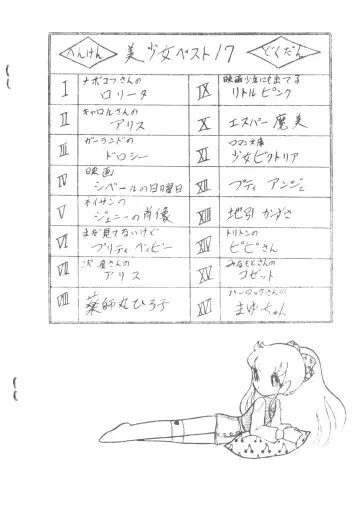 へんけん
美少女ベスト17
どくだん
I
ナボコフさんの
ロリータ
II
キャロルさんの
アリス
III
ガーランドの
ドロシー
IV
映画
シベールの日曜日
V
ネイサンの
ジェニーの肖像
VI
まだ見てないけど
プリティベイビー
VII
沢渡さんの
アリス
VIII
薬師丸ひろ子
IX
映画少年にも出てる
リトルピンク
X
エスパー魔美
XI
ロマン文庫
少女ビクトリア
XII
プティアンジェ
XIII
地引かずさ
XIV
トリトンの
ピピさん
XV
みなもとさんの
コゼット
XVI
ハーロックさんの
まゆちゃん